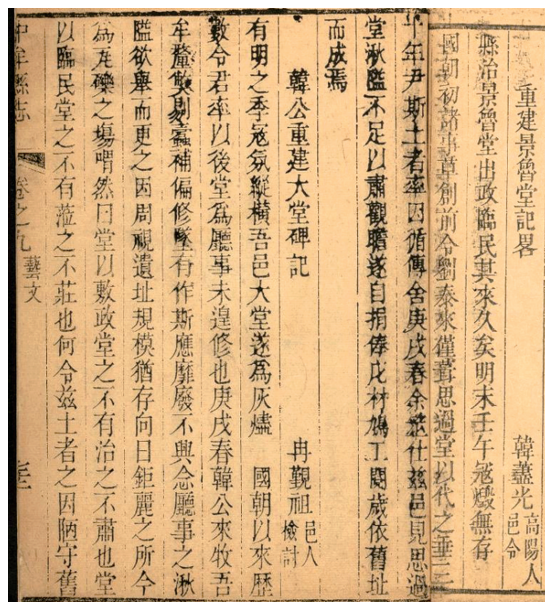 重建景魯堂記畧
韓藎光高陽人邑令
縣治景魯堂出政臨民其來久矣明末壬午冦燬無存
國朝初諸事草創前令劉泰來僅葺思過堂以代之垂三
十年尹斯土者率因循傳舍庚戌春余筮仕茲邑見思過
堂湫隘不足以肅觀瞻遂自捐俸庀材鳩工閱歲依舊址
而成焉
韓公重建大堂碑記
冉覲祖邑人檢討
有明之季冦氛縱橫吾邑大堂遂為灰燼 國朝以來歷
數令君率以後堂為廳事未遑修也庚戌春韓公來牧吾
牟釐獘剔蠹補偏修墜有作斯應靡廢不興念廳事之湫
隘欲舉而更之因周視遺址規模猶存向日鉅麗之所今
為瓦礫之塲喟然曰堂以敷政堂之不有治之不肅也堂
以臨民堂之不有蒞之不莊也何令茲土者之因陋守舊
中牟縣志
卷之九
藝文